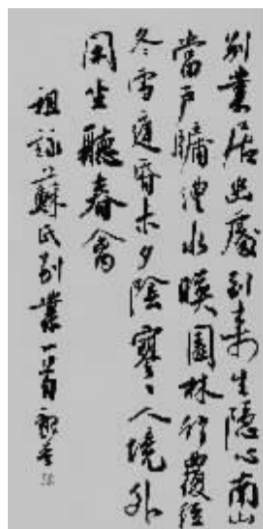 別業居幽處到來生隱心南山
當戶牖澧水映園林竹覆經
冬雪庭昏未夕陰寥々人境外
閑坐聽春禽
祖詠蘇氏別業一首